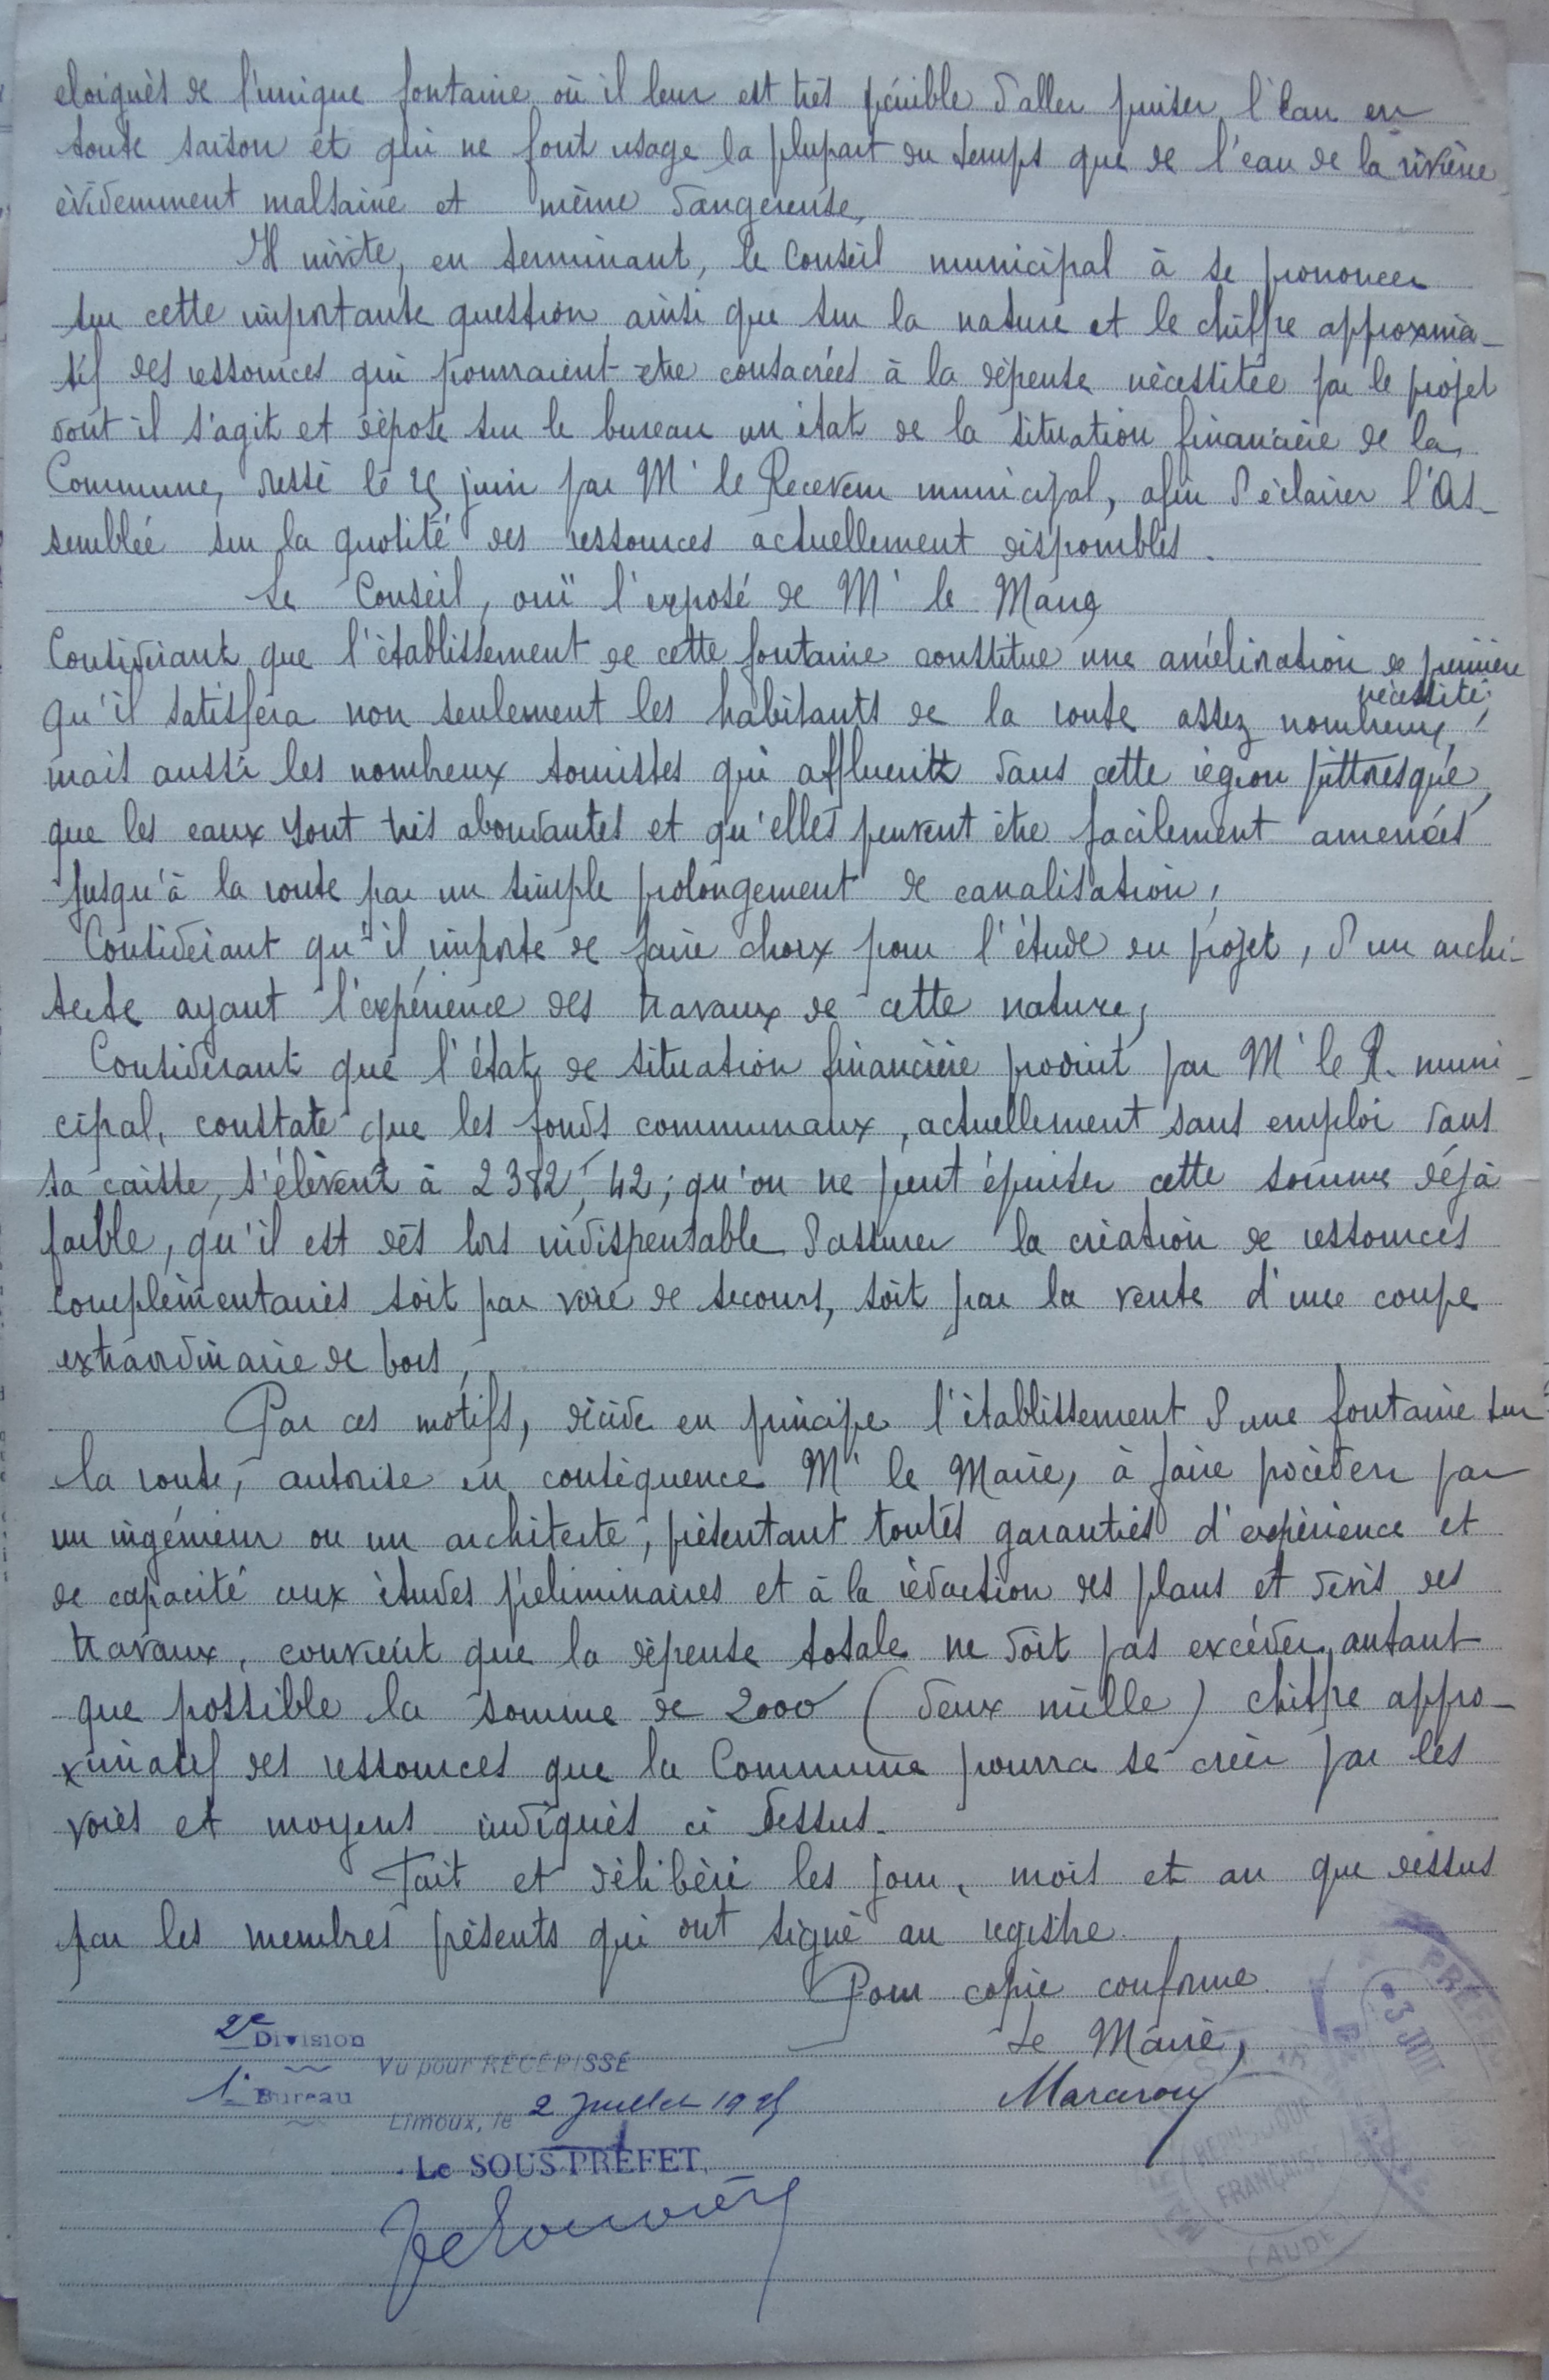 eloignès de l'unique fontaine où il leur est très pénible d'aller puiser l'eau en
toute saison et qui ne font usage la plupart du temps que de l'eau de la rivière
évidemment malsaine et même dangereuse,
Il invite, en terminant, le Conseil municipal à se prononcer
sur cette importante question, ainsi que sur la nature et le chiffre approxima-
tif des ressources qui pourraient être consacrées à la dépense nécessitée par le projet
dont il s'agit et dépose sur le bureau un état de la situation financière de la
Commune, dressé le 25 juin par Mr le Receveur municipal, afin d'éclairer l'As-
semblée sur la quotité des ressources actuellement disponibles.
Le Conseil, ouï l'exposé de Mr le Maire
Considérant que l'établissement de cette fontaine constitue une amélioration de première
nécessité;
qu'il satisfera non seulement les habitants de la route assez nombreux,
mais aussi les nombreux touristes qui affluent dans cette région pittoresque,
que les eaux sont très abondantes et qu'elles peuvent être facilement amenées
jusqu'à la route par un simple prolongement de canalisation;
Considérant qu'il importe de faire choix pour l'étude du projet, d'un archi-
tecte ayant l'expérience des travaux de cette nature;
Considérant que l'état de situation financière produit par Mr le R. muni-
cipal, constate que les fonds communaux, actuellement sans emploi dans
sa caisse, s'élèvent à 2382f,42; qu'on ne peut épuiser cette somme déjà
faible, qu'il est dès lors indispensable d'assurer la création de ressources
complémentaires soit par voie de secours, soit par la vente d'une coupe
extraordinaire de bois,
Par ces motifs, décide en principe l'établissement d'une fontaine sur
la route, autorise en conséquence Mr le Maire, à faire procéder par
un ingénieur ou un architecte, présentant toutes garanties d'expérience et
de capacité aux études préliminaires et à la rédaction des plans et devis des
travaux, convient que la dépense totale ne doit pas excéder autant
que possible la somme de 2000 (deux mille) chiffre appro-
ximatif des ressources que la Commune pourra se créer par les
voies et moyens indiqués ci dessus.
Fait et délibéré les jour, mois et an que dessus
par les membres présents qui ont signé au registre.
Pour copie conforme.
Le Maire,
2e Division
1er Bureau
Vu pour RÉCÉPISSÉ
Limoux, le 2 Juillet 1925
Le SOUS-PRÉFET,
RÉPUBLIQUE
FRANÇAISE
(AUDE)